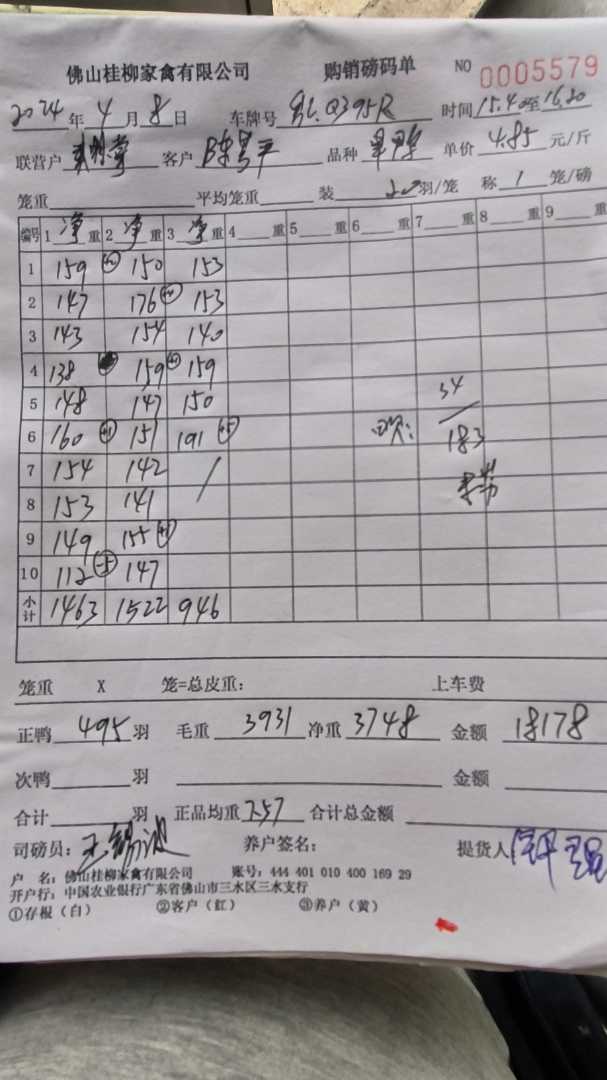 佛山桂柳家禽有限公司 购销磅码单 NO 0005579
2024年4月8日 车牌号 Q395R 时间15.40至16.20
联营户 客户 陈 平 品种 单价 4.85 元/斤
笼重 平均笼重 装 20羽/笼 称 1 笼/磅
编号 1 净 重 2 净 重 3 净 重 4 重 5 重 6 重 7 重 8 重 9 重
1 159 150 153
2 147 176 153
3 143 154 140
4 138 159 159
5 148 147 150 34
6 160 151 191 183
7 154 142 /
8 153 141
9 149 155
10 112 (-5) 147
小计 1463 1522 946
笼重 X 笼=总皮重: 上车费
正鸭 495 羽 毛重 3931 净重 3748 金额 18178
次鸭 羽 金额
合计 羽 正品均重 7.57 合计总金额
司磅员: 养户签名: 提货人
户 名: 佛山桂柳家禽有限公司 账号: 444 401 010 400 169 29
开户行: 中国农业银行广东省佛山市三水区三水支行
①存根（白） ②客户（红） ③养户（黄）